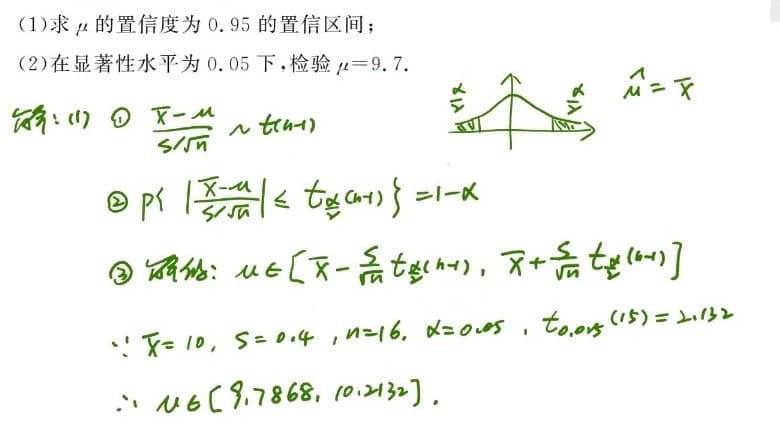 (1)求 μ 的置信度为 0.95 的置信区间;
(2)在显著性水平为 0.05 下,检验 μ=9.7.
解:(1) ① (x̄-μ)/(S/√n) ~ t(n-1)
α/2 α/2 μ̂ = x̄
② P{ |(x̄-μ)/(S/√n)| ≤ t_{α/2}(n-1) } = 1-α
③ 解得: μ∈[x̄ - S/√n t_{α/2}(n-1), x̄ + S/√n t_{α/2}(n-1)]
∵ x̄=10, S=0.4, n=16, α=0.05, t_{0.025}(15)=2.132
∴ μ∈[9.7868, 10.2132].